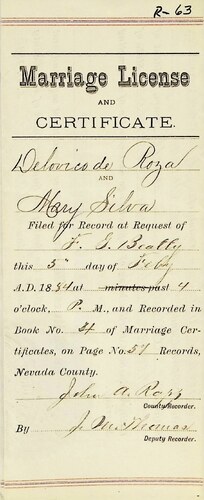 R-63
Marriage License
AND
CERTIFICATE.
Delovico de Roza
AND
Mary Silva
Filed for Record at Request of
F. J. Beatty
this 5" day of Feby
A.D. 1894 at minutes past 4
o'clock, P. M., and Recorded in
Book No. 4 of Marriage Cer-
tificates, on Page No. 57 Records,
Nevada County.
John A.
County Recorder.
By J. M. Thomas
Deputy Recorder.